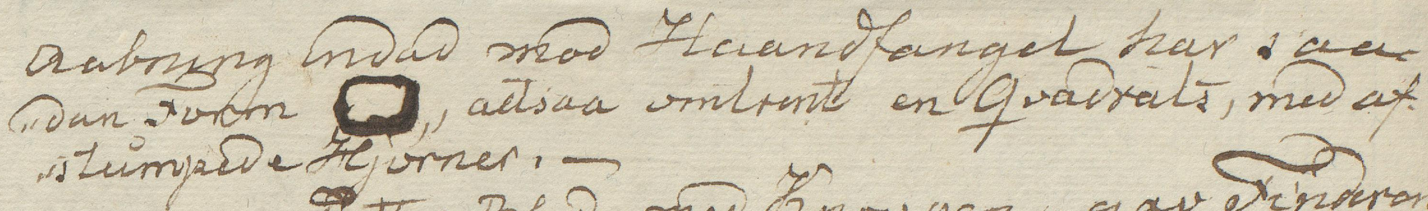 Aabning indad mod Haandfanget har saa
„dan Form „ „, altsaa omtrent en Qvadrats, med af-
„stumpede Hjørner. —
med